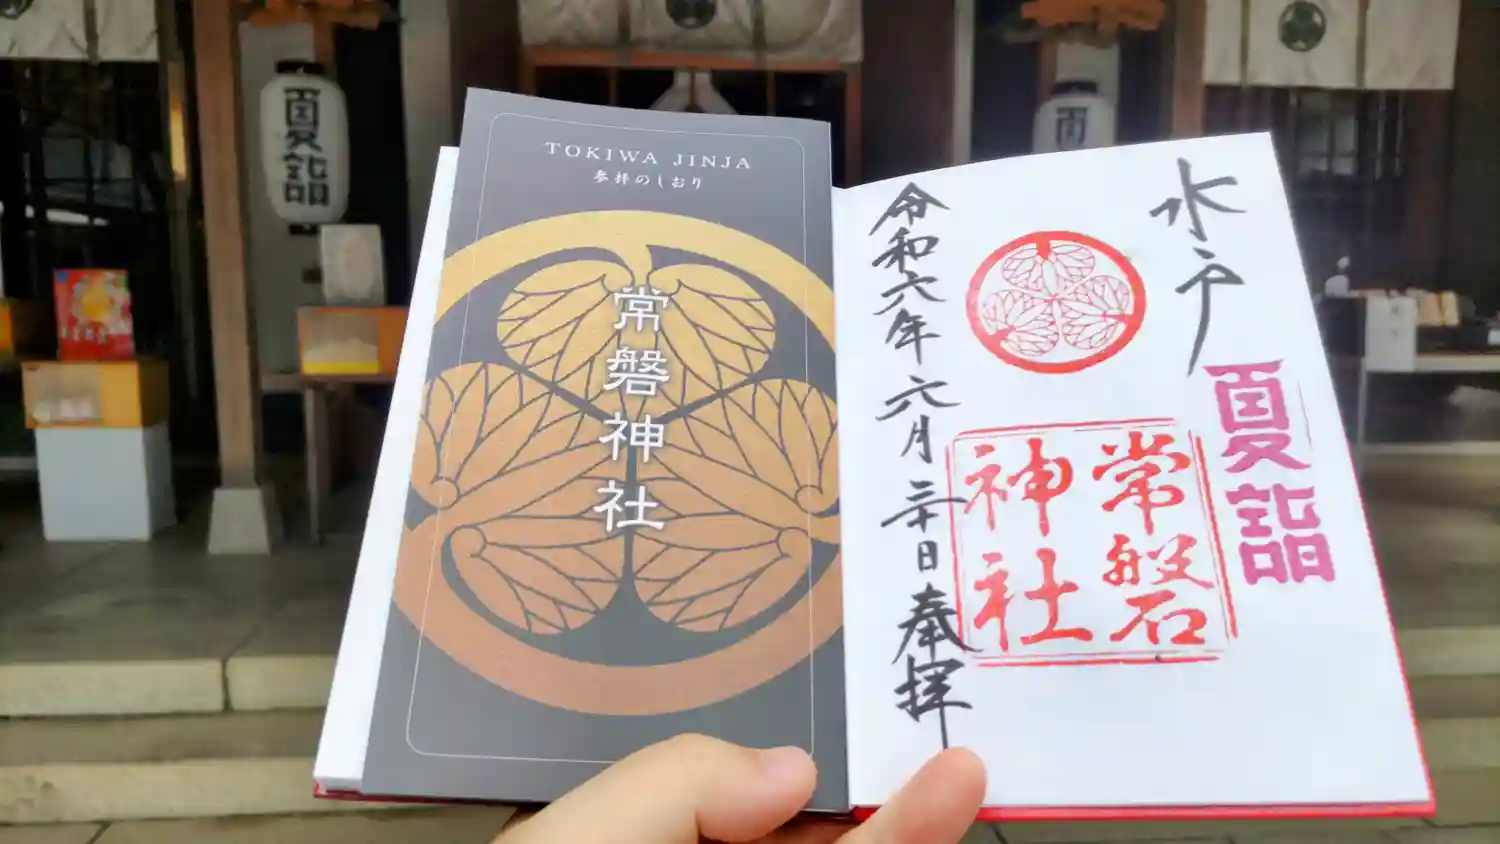 夏詣
夏
TOKIWA JINJA
参拝のしおり
常磐神社
水戸
夏詣
常磐
神社
令和六年 六月 三十日 奉拝